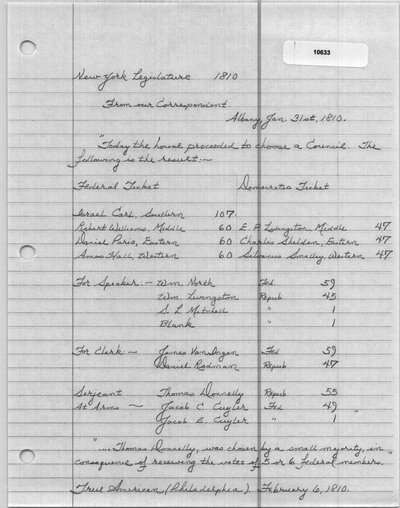 10633
New York Legislature 1810
From our Correspondent
Albany, Jan. 31st, 1810.
"Today the house proceeded to choose a Council. The
following is the result:-
Federal Ticket Democratic Ticket
Israel Carl, Southern 107.
Robert Williams, Middle 60 E. P. Livingston, Middle 47
Daniel Paris, Eastern 60 Charles Shelden, Eastern 47
Amos Hall, Western 60 Selvanus Smalley Western 47
For Speaker:- Wm. North Fed 59
Wm. Livingston Repub 45
S. L. Mitchell " 1
Blank " 1
For Clerk- James Van Ingen Fed 59
Daniel Rodman Repub 47
Sergeant Thomas Donnelly Repub 55
At Arms - Jacob C. Cuyler Fed 49
Jacob B. Cuyler " 1 "
".... Thomas Donnelly, was chosen by a small majority, in
consequence of receiving the votes of 5 or 6 Federal members.
True American (Philadelphia). February 6, 1810.